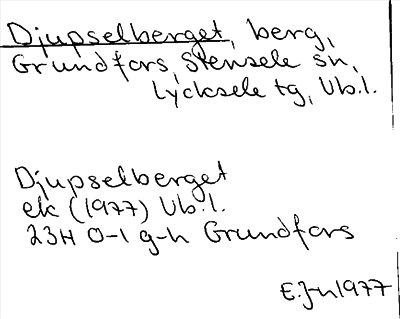 Djupselberget, berg,
Grundfors, Stensele sn,
Lycksele tg, Vb.l.
Djupselberget
ek (1977) Vb.l.
23H 0-1 g-h Grundfors
E.J-n 1977